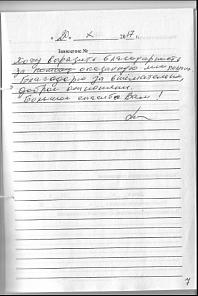 " 20 " X 2017 г.
Заявление №
Хочу выразить благодарность
за помощь оказанную мне
Благодарю за внимательное,
доброе отношение.
Большое спасибо Вам!
7